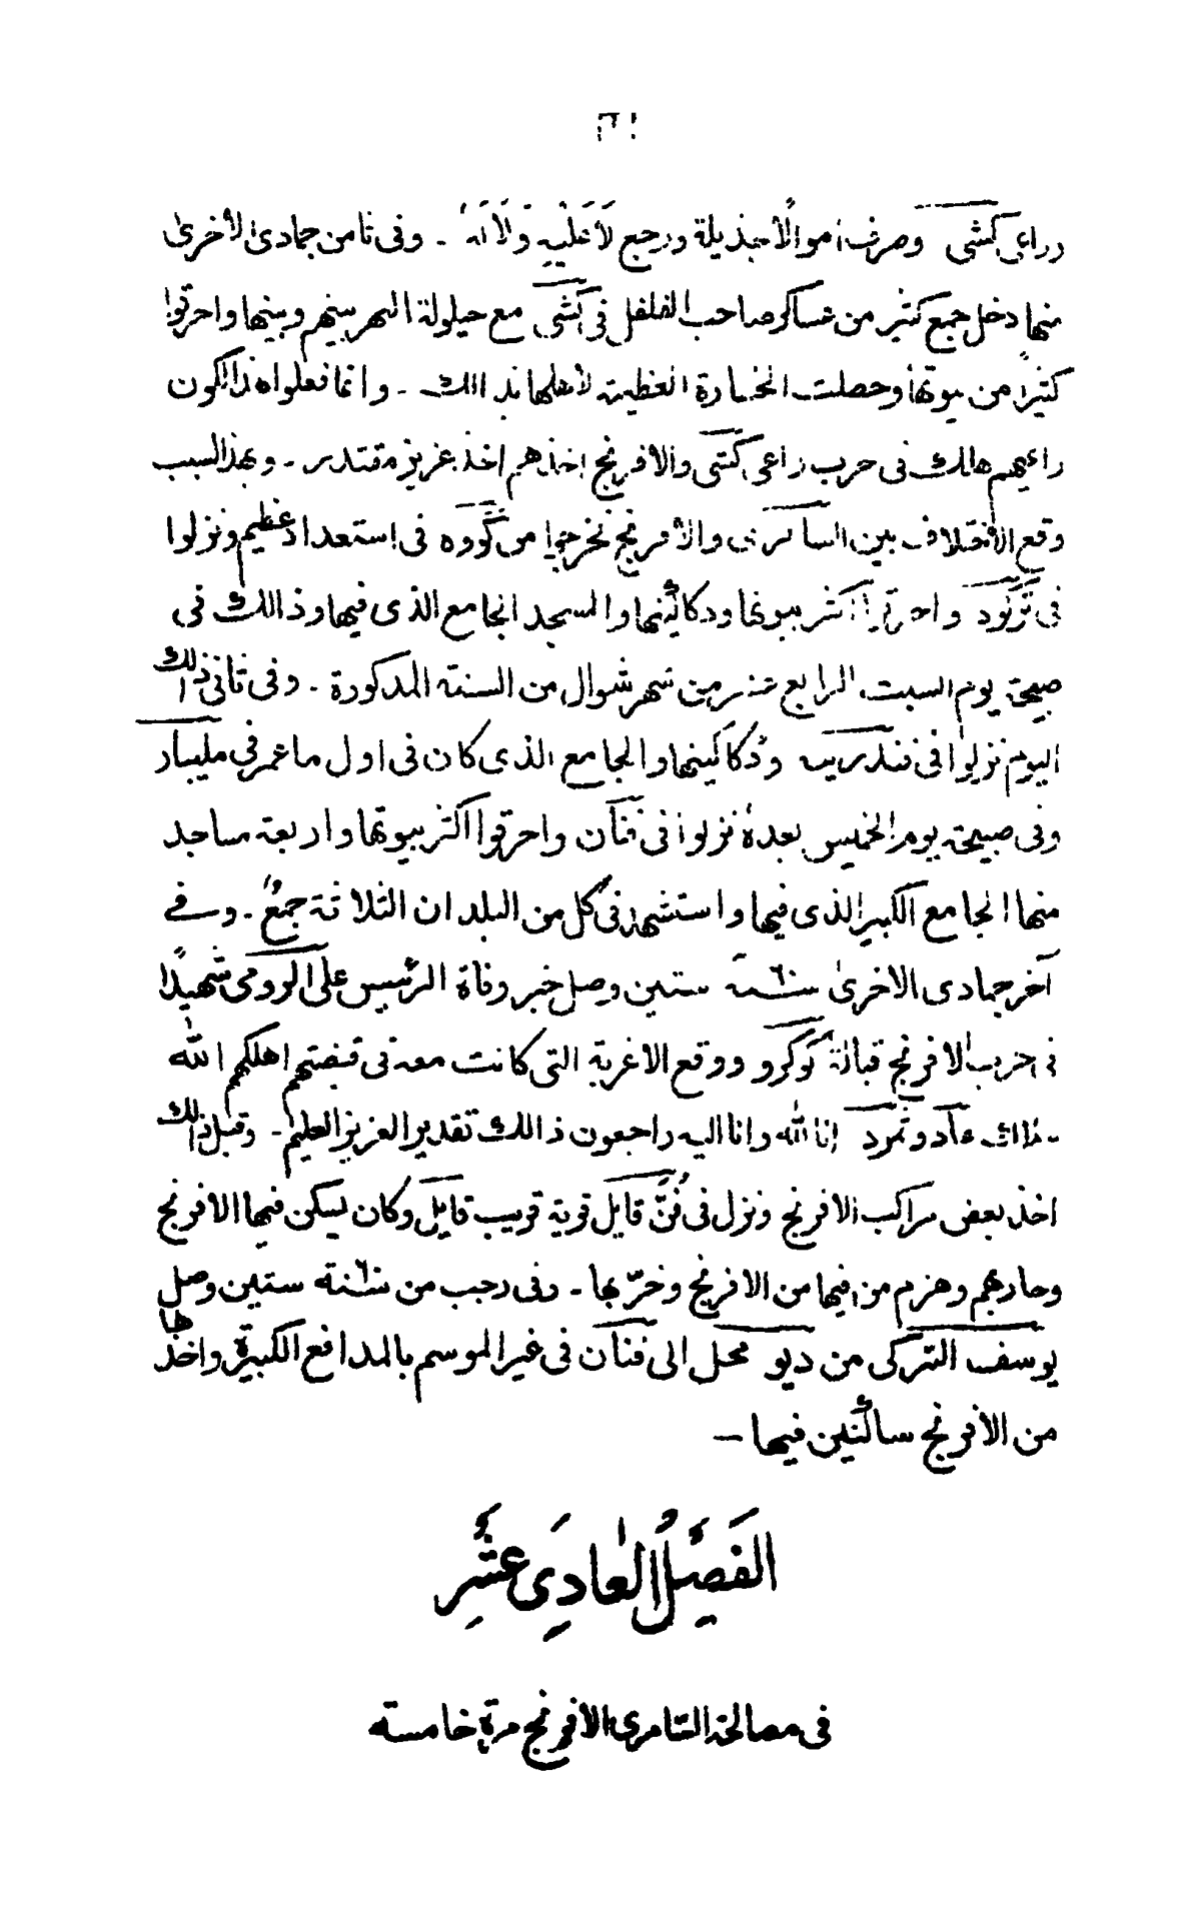 وراعى كشى وصرف أموالًا جزيلة ورجع لَا عَلَيْهِ وَلَا لَهُ ـ وفى ثامن جمادى الأخرى
منها دخل جمع كثير من عساكر صاحب الفلفل فى كشى مع حيلولة النهر بينهم وبينها واحرقوا
كثيرًا من بيوتها وحصلت الخسارة العظيمة لأهلها بذالك ـ وانما فعلوا هذا لكون
راعيهم هالك فى حرب راعى كشى والافرنج اخذهم اخذ عزيز مقتدر ـ وبهذا السبب
وقع الأختلاف بين السامرى والأفرنج فخرجوا من كُووه فى استعداد عظيم ونزلوا
فى تركود واحرقوا اكثر بيوتها ودكاكينها والمسجد الجامع الذى فيها وذالك فى
صبيحة يوم السبت الرابع عشر من شهر شوال من السنة المذكورة ـ وفى ثانى ذالك
اليوم نزلوا فى فندرينه ودكاكينها والجامع الذى كان فى اول ما عمر فى مليبار
وفى صبيحة يوم الخميس بعدهُ نزلوا فى فنان واحرقوا اكثر بيوتها واربعة مساجد
منها الجامع الكبير الذى فيها واستشهد فى كل من البلدان الثلاثة جمعٌ ـ وفى
آخر جمادى الاخرى سنة ٩٦٠ ستين وصل خبر وفاة الرئيس على الرومى شهيدًا
فى حرب الافرنج قبالة ووقع الاغربة التى كانت معه فى قبضتهم اهلكهم الله
هلاك عاد وثمود إنا لله وانا اليه راجعون ذالك تقدير العزيز العليم ـ وقبل ذالك
اخذ بعض مراكب الافرنج ونزل فى فُنَّ قايل قرية قريب قايل وكان يسكن فيها الافرنج
وحاربهم وهزم من فيها من الافرنج وخرّبها ـ وفى رجب من سنة ستين وصل
يوسف التركى من ديو محل الى فنان فى غير الموسم بالمدافع الكبيرة واخذها
من الأفرنج ساكنين فيها ـ
الفَصْلُ الحَادِى عَشَر
فى مصالحة السّامرى الأفرنج مرة خامسة